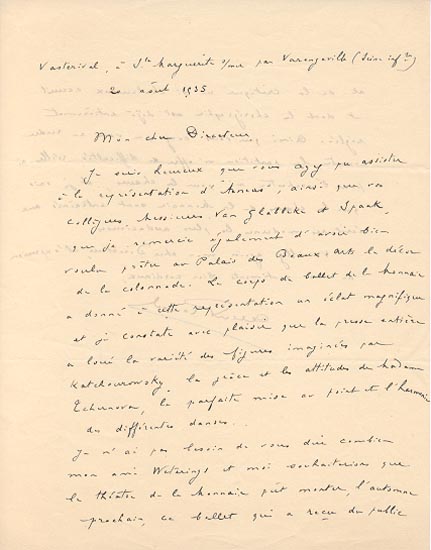 Vasterival, à Ste Marguerite s/mer par Varengeville (Seine infre)
20 août 1935
Mon cher Directeur,
Je suis heureux que vous ayez pu assister
à la représentation d'Aeneas, ainsi que vos
collègues Messieurs Van Glabbeke et Spaak,
que je remercie également d'avoir bien
voulu prêter au Palais des Beaux arts le décor
de la colonnade. Le corps de ballet de la Monnaie
a donné à cette représentation un éclat magnifique
et je constate avec plaisir que la presse entière
a loué la variété des figures imaginées par
Katchourowsky, la grâce et les attitudes de Madame
Tchernova, la parfaite mise au point et l'harmonie
des différentes danses...
Je n'ai pas besoin de vous dire combien
mon ami Weterings et moi souhaiterions que
le théâtre de la Monnaie pût monter, l'automne
prochain, ce ballet qui a reçu du public